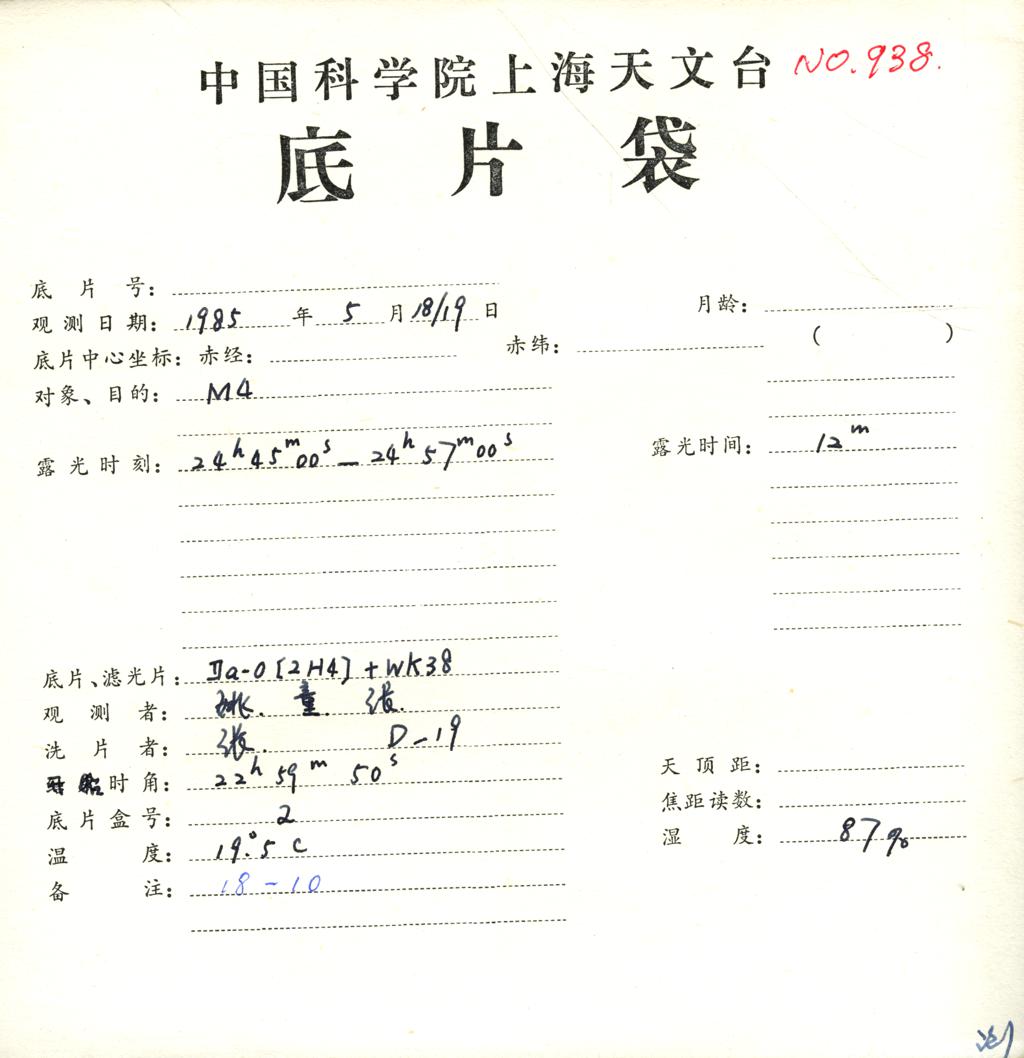 中国科学院上海天文台 NO.938.
底片袋
底片号：
观测日期：1985年5月18/19日 月龄：
底片中心坐标：赤经： 赤纬： ( )
对象、目的：M4
露光时刻：24h45m00s—24h57m00s 露光时间：12m
底片、滤光片：IIa-O[2H4]+WK38
观测者：姚.童.张.
洗片者：张. D-19
时角：22h59m50s 天顶距：
底片盒号：2 焦距读数：
温度：19.°5 C 湿度：87%
备注：18-10